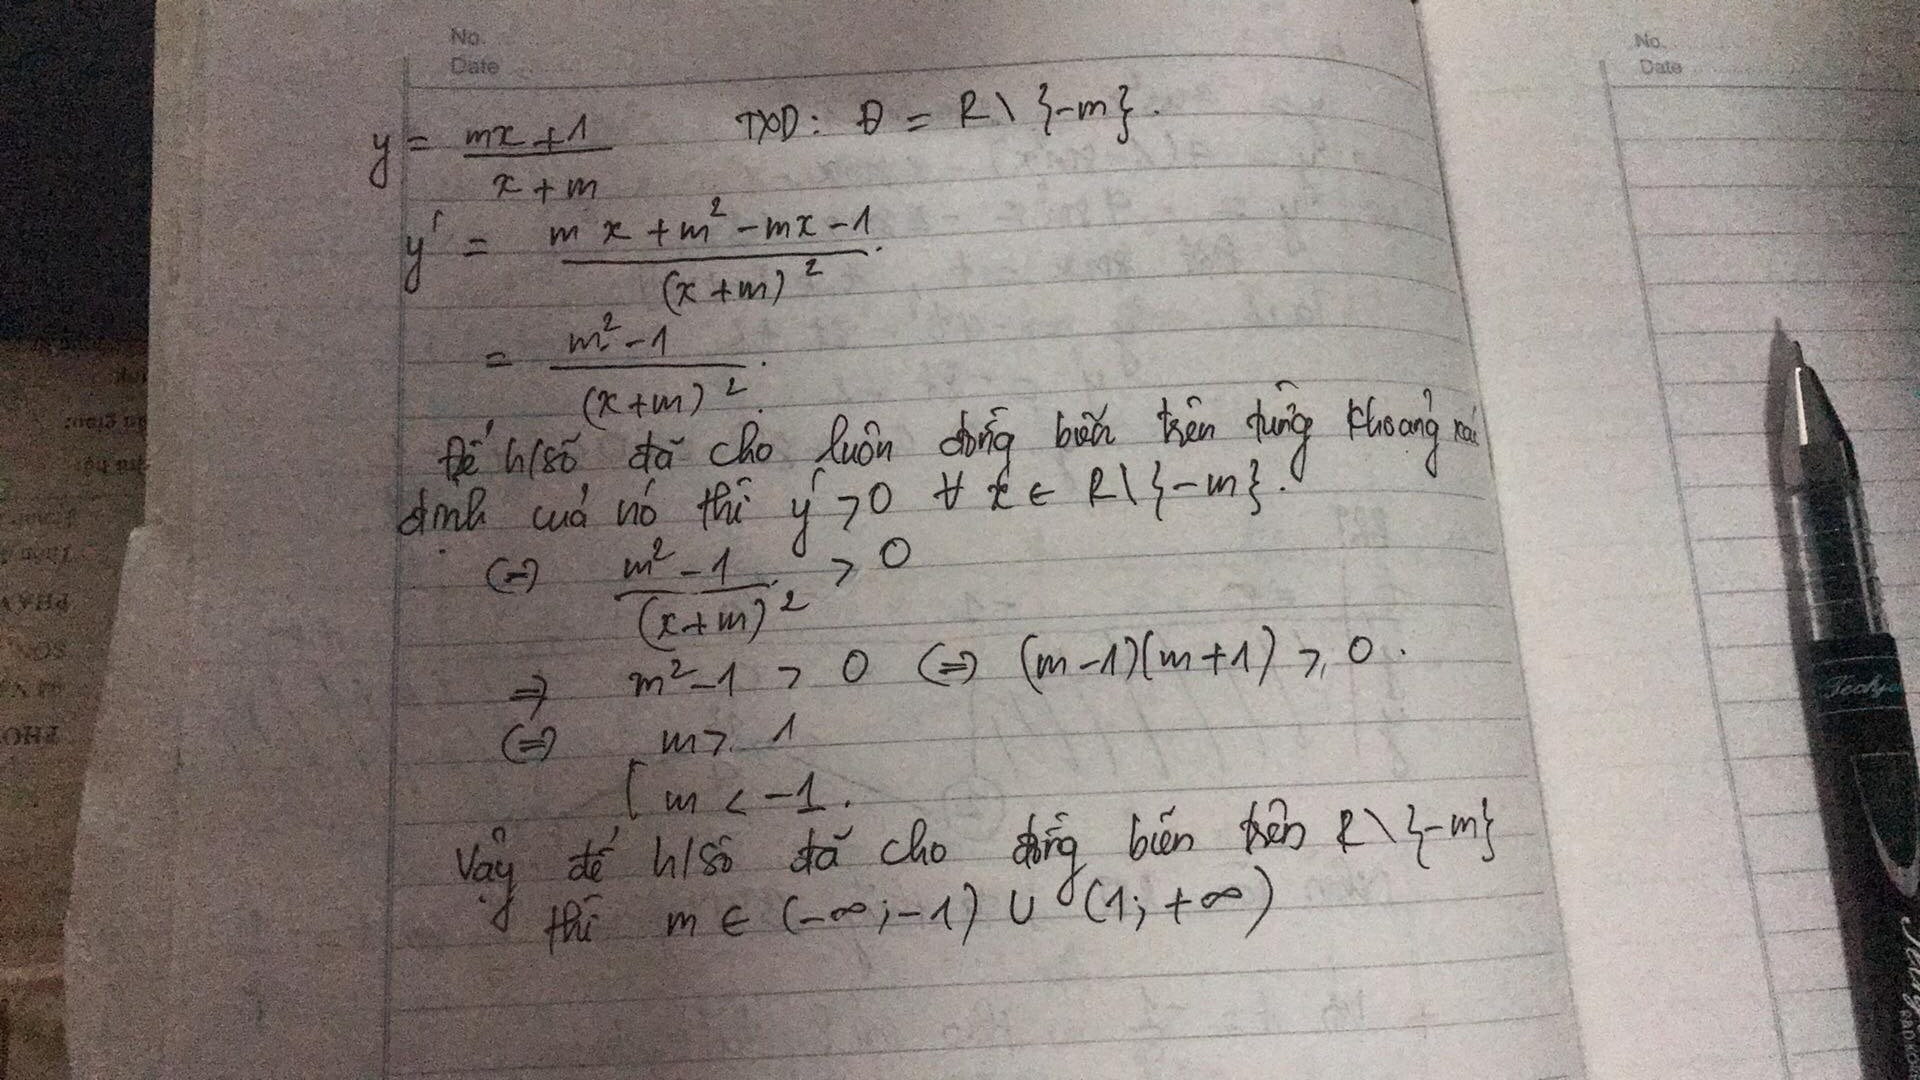 No.
Date
No.
Date
y = \frac{mx+1}{x+m} TXĐ: Đ = R \ {-m}.
y' = \frac{mx+m^2-mx-1}{(x+m)^2}.
= \frac{m^2-1}{(x+m)^2}.
Để h/số đã cho luôn đồng biến trên từng khoảng xác
định của nó thì y' > 0 ∀ x ∈ R \ {-m}.
(=) \frac{m^2-1}{(x+m)^2} > 0
=> m^2-1 > 0 (=) (m-1)(m+1) > 0.
(=) m > 1
[ m < -1.
Vậy để h/số đã cho đồng biến trên R \ {-m}
thì m ∈ (-∞; -1) ∪ (1; +∞)